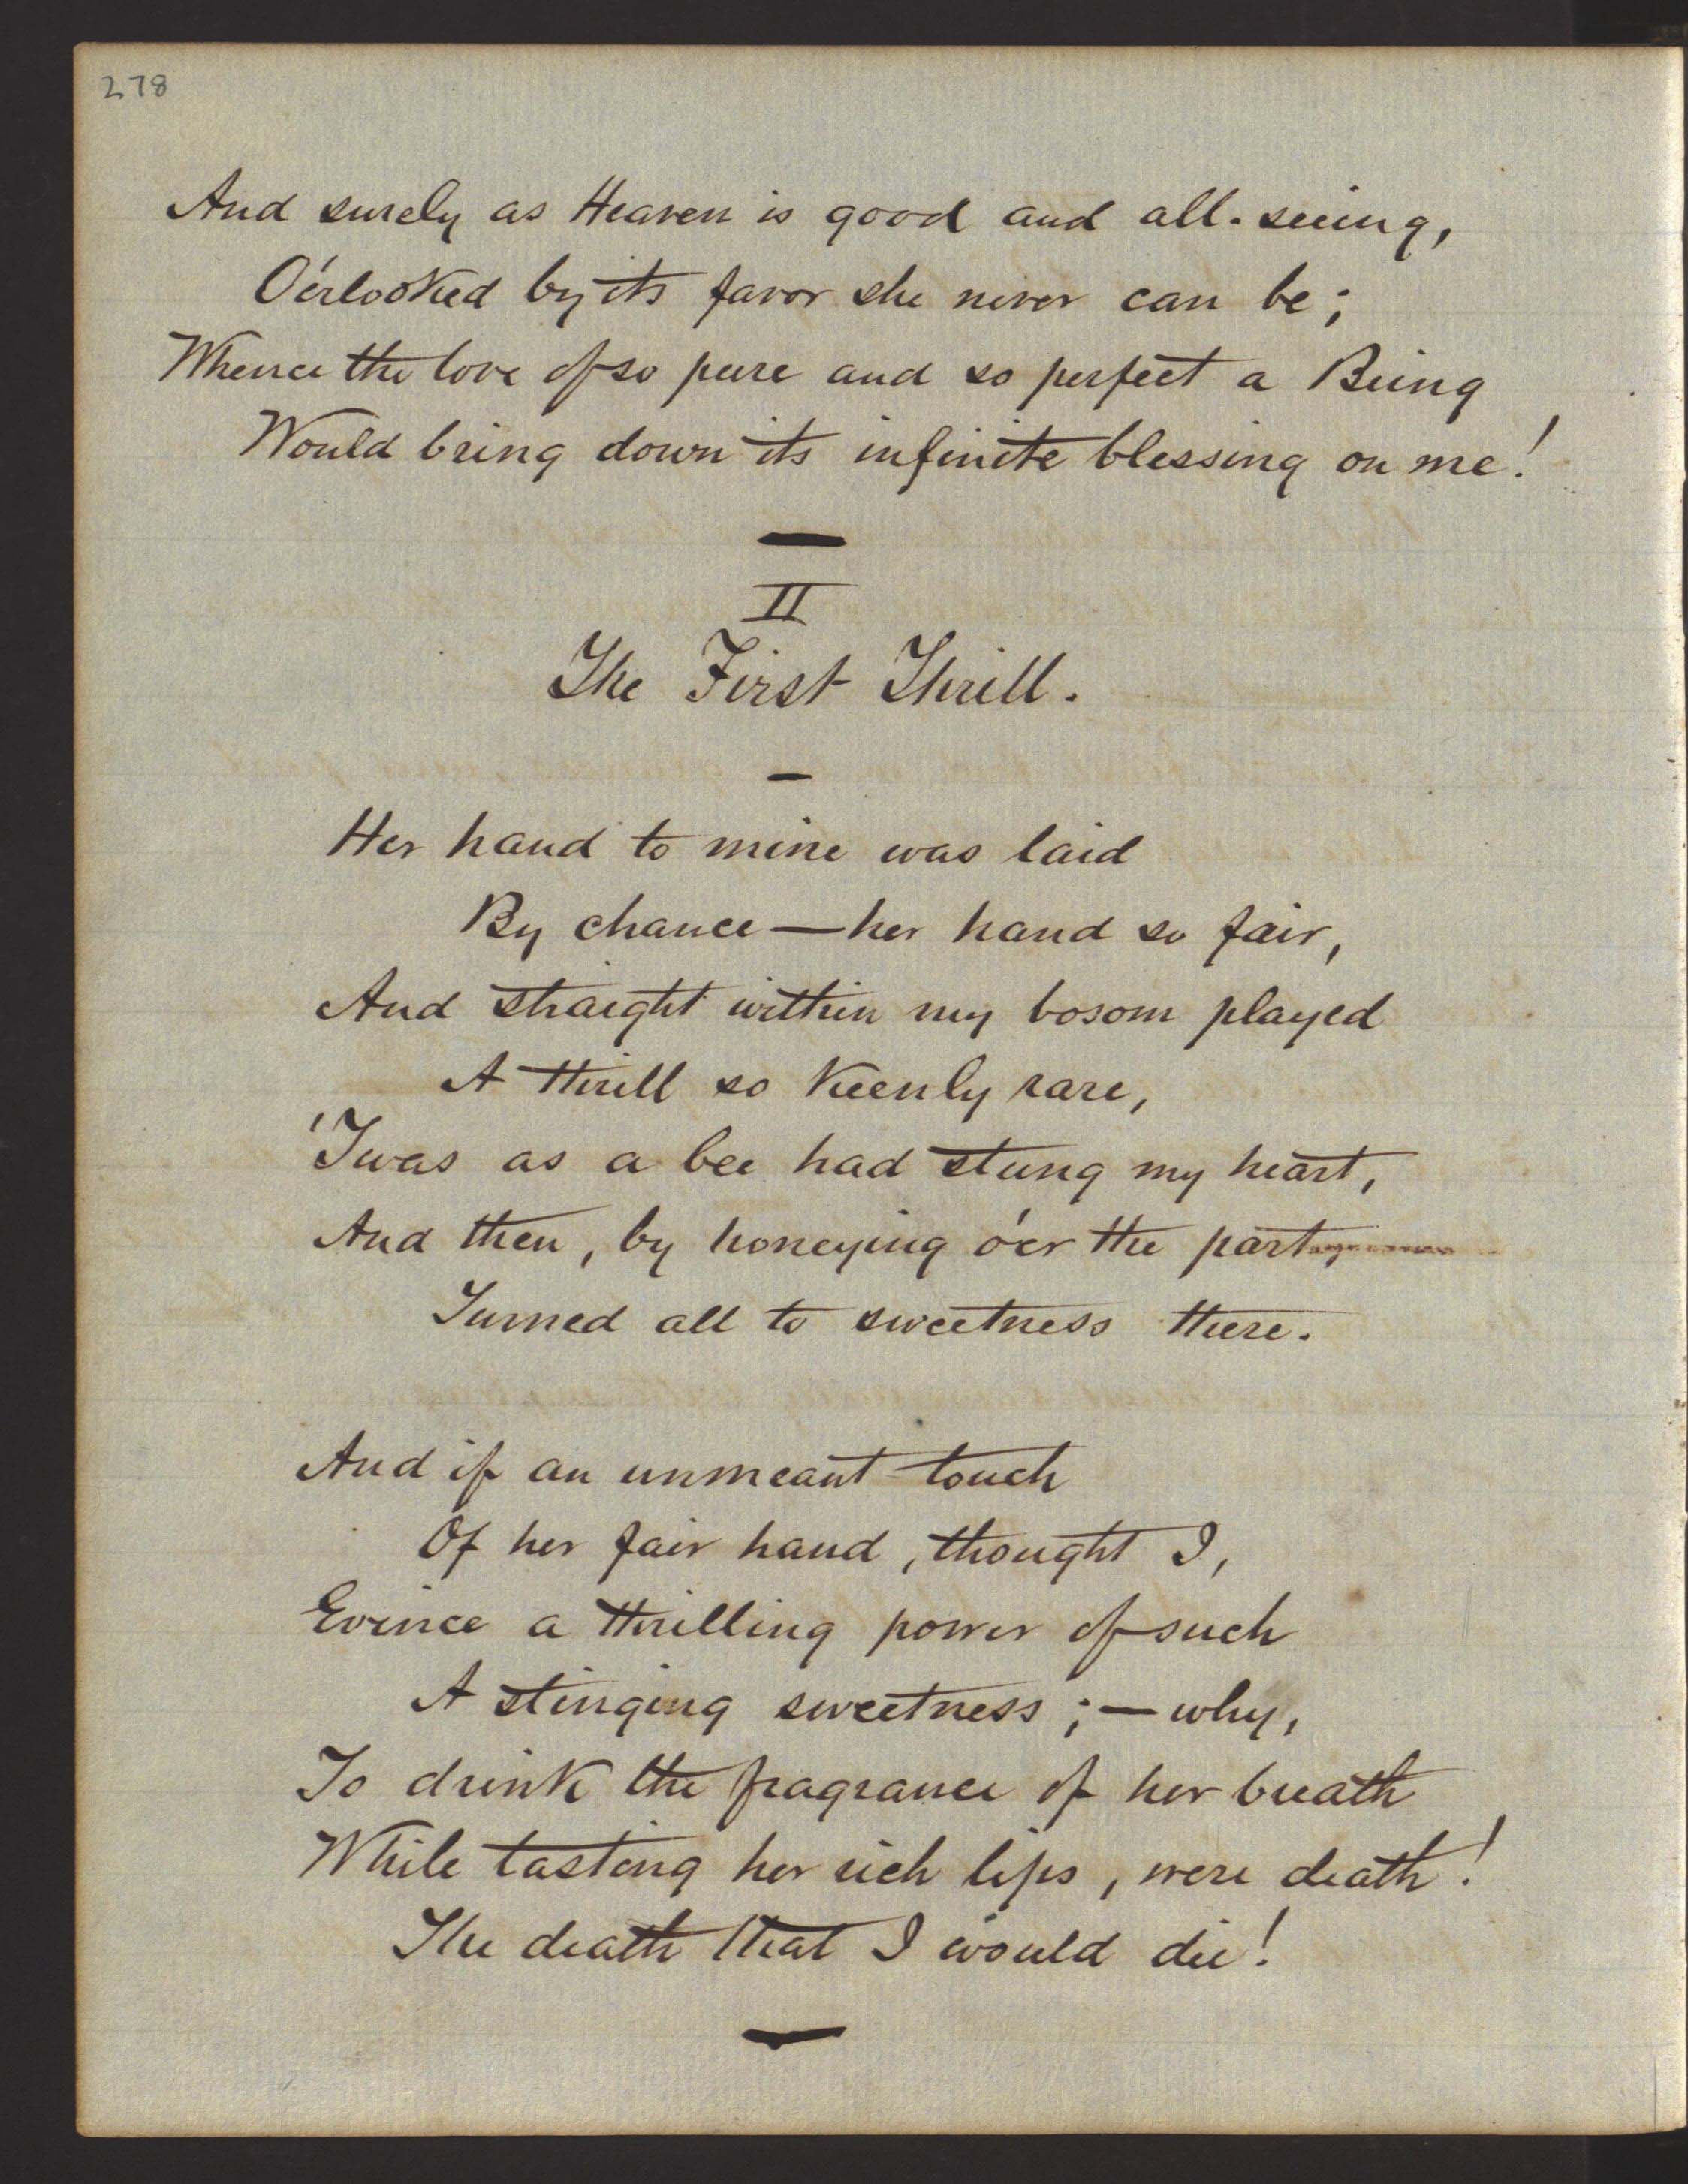 278
And surely as Heaven is good and all-seeing,
O'erlooked by its favor she never can be;
Whence the love of so pure and so perfect a Being
Would bring down its infinite blessing on me!
II
The First Thrill.
Her hand to mine was laid
By chance—her hand so fair,
And straight within my bosom played
A thrill so keenly rare,
'Twas as a bee had stung my heart,
And then, by honeying o'er the part,
Turned all to sweetness there.
And if an unmeant touch
Of her fair hand, thought I,
Evince a thrilling power of such
A stinging sweetness;—why,
To drink the fragrance of her breath
While tasting her rich lips, were death!
The death that I would die!